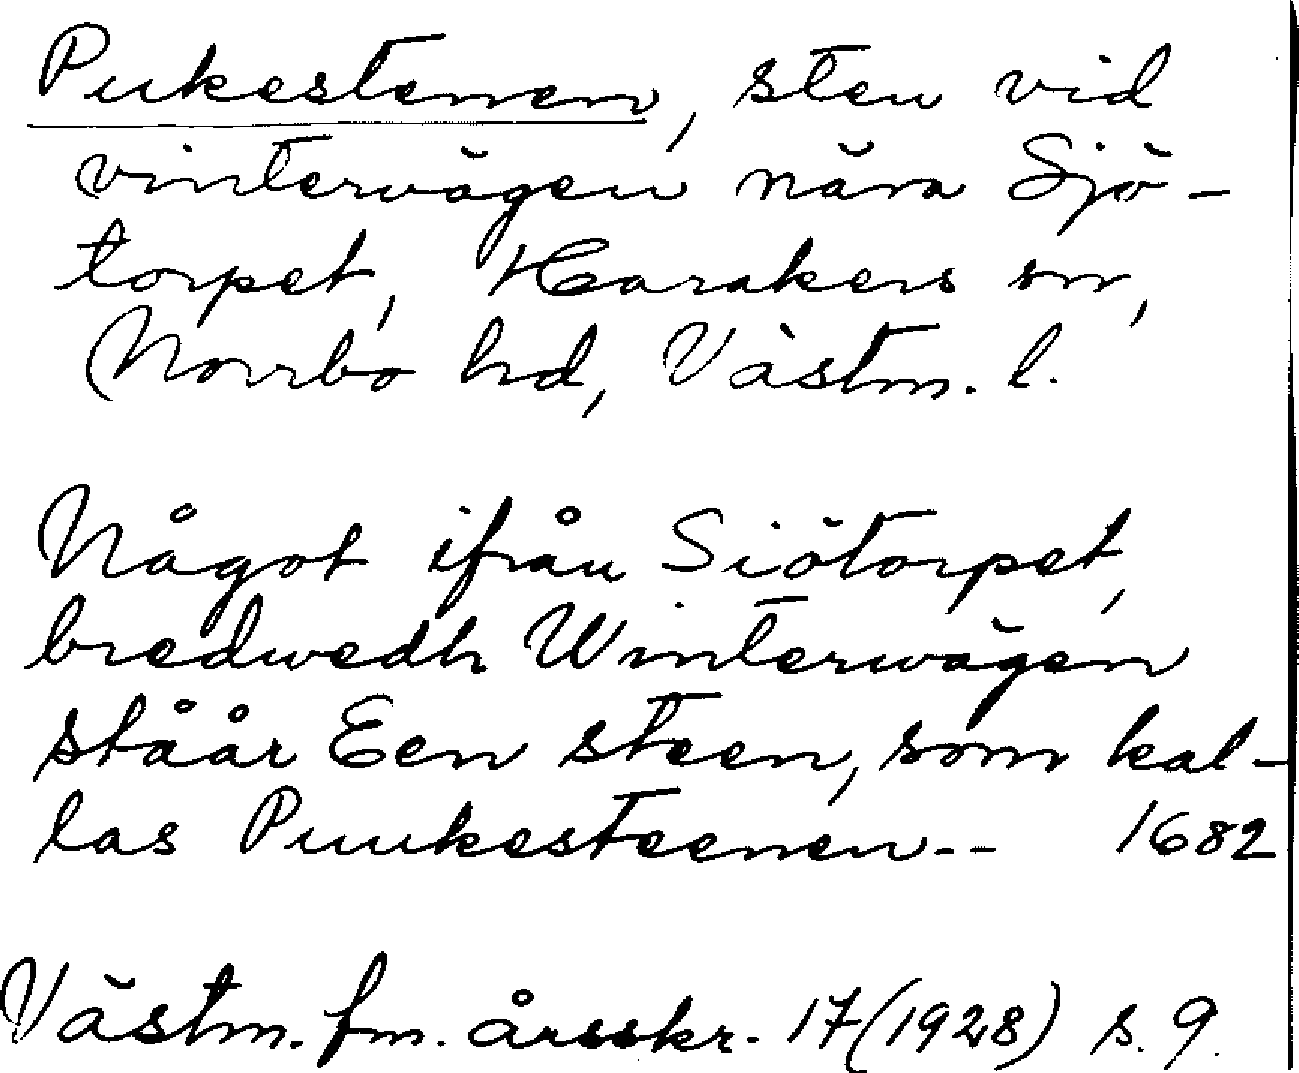 Pukestenen, sten vid
vintervägen nära Sjö-
torpet, Harakers sn,
Norrbo hd, Västm. l.
Något ifrån Siötorpet,
bredwedh Winterwägen
ståår Een steen, som kal-
las Puukesteenen-- 1682
Västm. fm. årsskr. 17 (1928) s. 9.